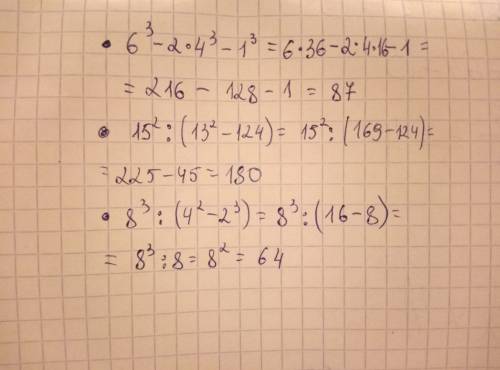 • 6³ - 2 • 4³ - 1³ = 6 • 36 - 2 • 4 • 16 - 1 =
= 216 - 128 - 1 = 87
• 15² : (13² - 124) = 15² : (169 - 124) =
= 225 - 45 = 180
• 8³ : (4² - 2³) = 8³ : (16 - 8) =
= 8³ : 8 = 8² = 64